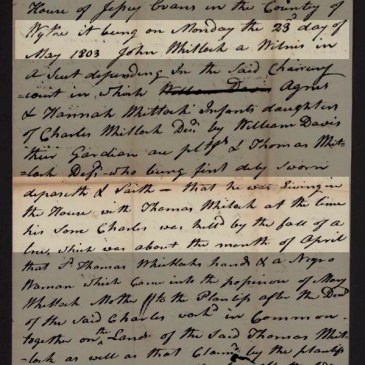 House of Jessey Evans in the County of
Wythe it being on Monday the 23d day of
May 1803 John Whitlock a Witnis in
a Suit depending In the Said Chancery
court in which William Davis Agnes
& Hannah Whitlock Infants daughters
of Charles Whitlock Decd by William Davis
their Gardian are pltfs & Thomas Whit-
lock Deft. who being first duly sworn
deposeth & Saith - that he was living in
the House with Thomas Whitlock at the time
his Sone Charles was killed by the fall of a
tree, which was about the month of April
that sd Thomas Whitlocks hands & a Negro
Woman which Came into the possession of Mary
Whitlock Mother to the Plantifs after the Death
of the said Charles workd in Common
together on the Land of the Said Thomas Whit-
lock as well as that Claimd by the plantifs